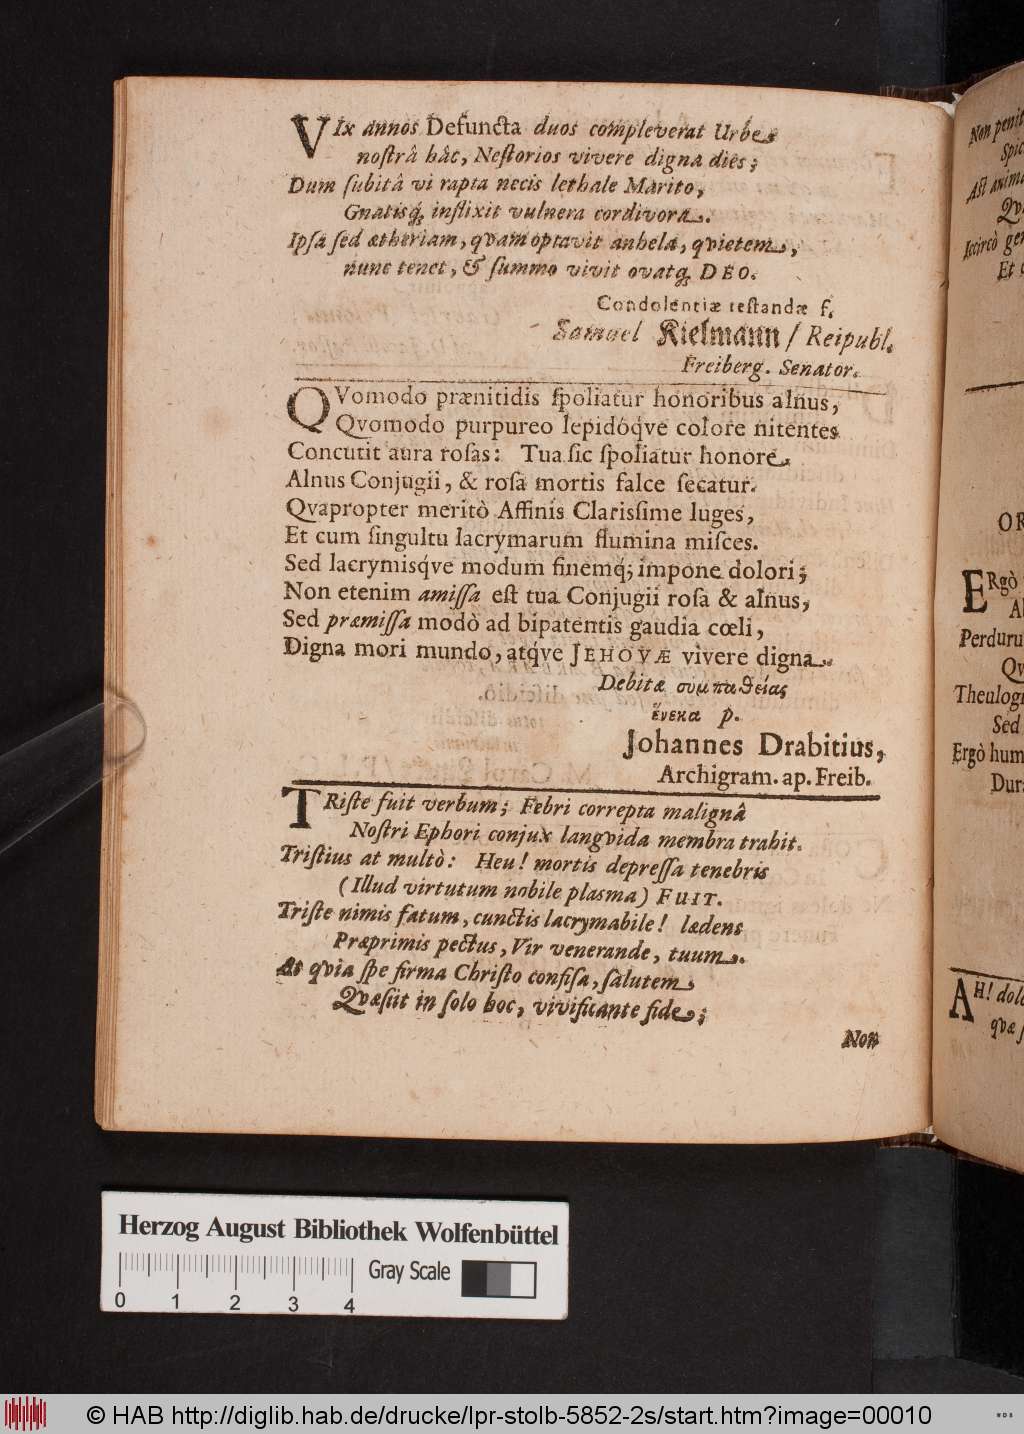 VIx annos Defuncta duos compleverat Urbe
nostrâ hâc, Nestorios vivere digna dies;
Dum subitâ vi rapta necis lethale Marito,
Gnatisq́; inflixit vulnera cordivora.
Ipsa sed ætheriam, qvam optavit anhela, qvietem,
nunc tenet, & summo vivit ovatq́; DEO.
Condolentiæ testandæ f.
Samuel Kielmann / Reipubl.
Freiberg. Senator.
QVomodo prænitidis spoliatur honoribus alnus,
Qvomodo purpureo lepidóq́ve colore nitentes
Concutit aura rosas: Tua sic spoliatur honore
Alnus Conjugii, & rosa mortis falce secatur.
Qvapropter meritò Affinis Clarissime luges,
Et cum singultu lacrymarum flumina misces.
Sed lacrymisq́ve modum finemq́; impone dolori;
Non etenim amissa est tua Conjugii rosa & alnus,
Sed præmissa modò ad bipatentis gaudia cœli,
Digna mori mundo, atq́ve JEHOVÆ vivere digna.
Debitæ συμπαθείας
ἕνεκα p.
Johannes Drabitius,
Archigram. ap. Freib.
TRiste fuit verbum; Febri correpta malignâ
Nostri Ephori conjux langvida membra trahit.
Tristius at multò: Heu! mortis depressa tenebris
(Illud virtutum nobile plasma) FUIT.
Triste nimis fatum, cunctis lacrymabile! lædens
Præprimis pectus, Vir venerande, tuum.
At qvia spe firma Christo confisa, salutem
Qvæsiit in solo hoc, vivificante fide;
Non
Non penit
Spic
Ast anima
Qv
Iccircò gen
Et
OR
ERgò
Al
Perduru
Qv
Theulogi
Sed
Ergò hum
Dura
AH! dolo
qvæ
Herzog August Bibliothek Wolfenbüttel
Gray Scale
0 1 2 3 4
© HAB http://diglib.hab.de/drucke/lpr-stolb-5852-2s/start.htm?image=00010